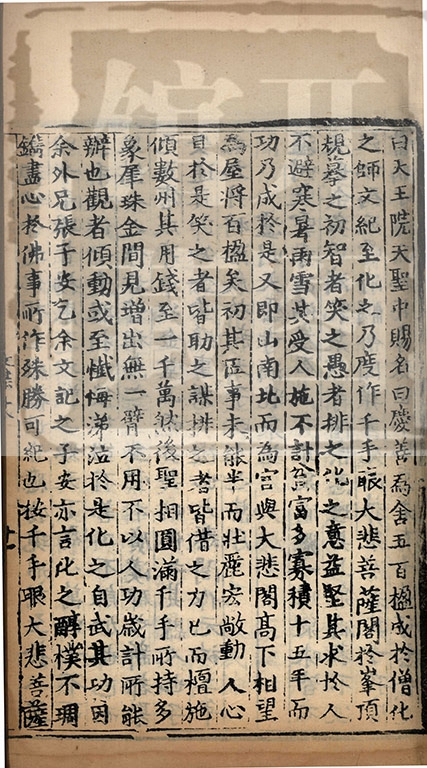 曰大王院天聖中賜名曰慶善為舍五百楹成於僧化
之師文紀至化之乃度作千手眼大悲菩薩閣於峯頂
規摹之初智者笑之愚者排之化之意益堅其求於人
不避寒暑雨雪其受人施不計貧富多寡積十五年而
功乃成於是又即山南北而為宮與大悲閣高下相望
為屋將百楹矣初其匠事未能半而壯麗宏敞動人心
目於是笑之者皆助之謀排之者皆借之力已而檀施
傾數州其用錢至一千萬然後聖相圓滿千手所持多
象犀珠金間見增出無一臂不用不以人功歲計所能
辦也觀者傾動或至懺悔涕泣於是化之自武其功因
余外兄張子安乞余文記之子安亦言化之醇樸不琱
鐫盡心於佛事所作殊勝可紀也按千手眼大悲菩薩